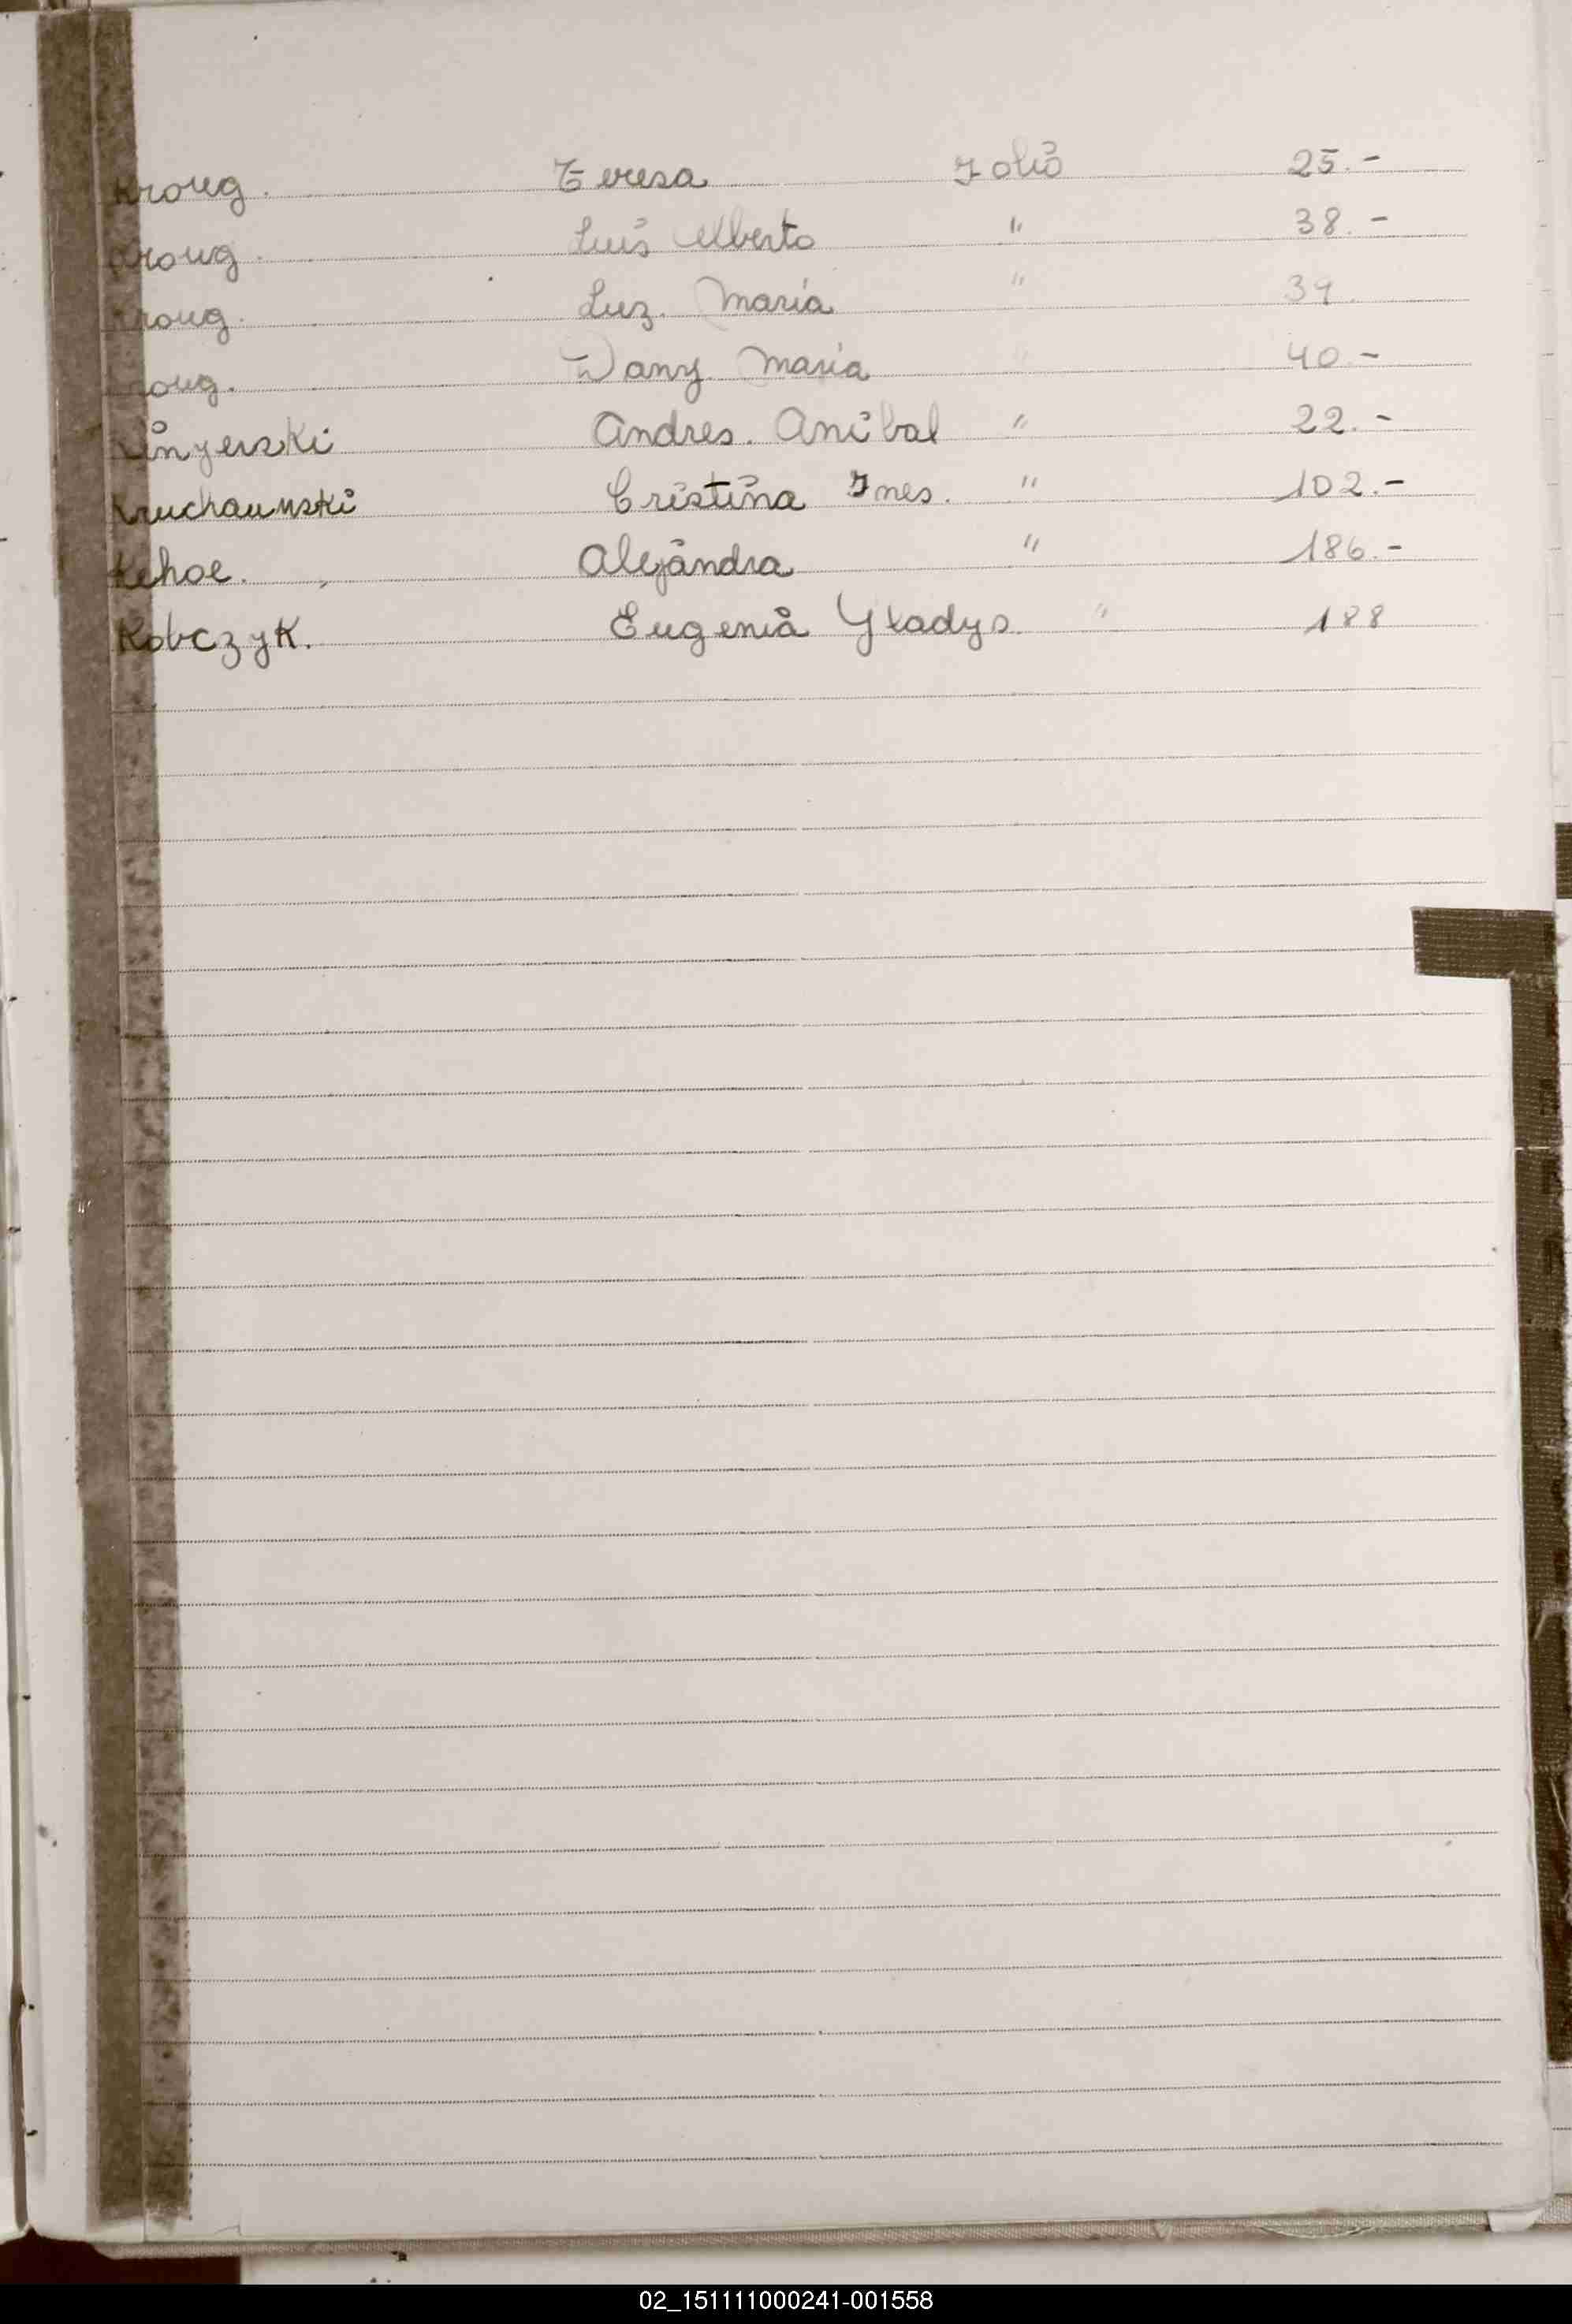 Kroug. Teresa Folio 25.-
Kroug. Luis Alberto " 38.-
Kroug. Luz. Maria " 39.
Kroug. Dany Maria " 40.-
Andres. Anibal " 22.-
Cristina Ines. " 102.-
Kehoe. Alejandra " 186.-
Kobczyk. Eugenia Gladys. " 188
02_151111000241-001558